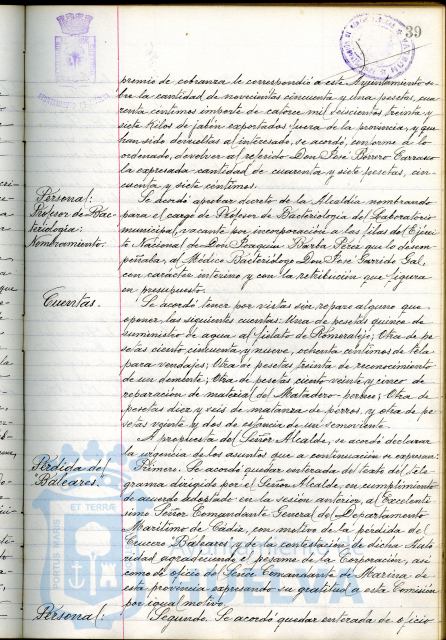 39
premio de cobranza le correspondió a este Ayuntamiento so-
bre la cantidad de novecientas cincuenta y una pesetas, cua-
renta céntimos importe de catorce mil seiscientos treinta y
siete kilos de jabón exportados fuera de la provincia, y que
han sido devueltas al interesado, se acordó, conforme a lo
ordenado, devolver al referido Don José Borrero Carrasco
la expresada cantidad de cuarenta y siete pesetas, cin-
cuenta y siete céntimos.
Personal:
Profesor de Bac-
teriología:
Nombramiento.
Se acordó aprobar decreto de la Alcaldía nombrando
para el cargo de Profesor de Bacteriología del Laboratorio
municipal, vacante por incorporación a las filas del Ejérci-
to Nacional de Don Joaquín Barba Pérez que lo desem-
peñaba, al Médico Bacteriólogo Don José Garrido Gal,
con carácter interino y con la retribución que figura
en presupuesto.
Cuentas.
Se acordó tener por vistas sin reparo alguno que
oponer, las siguientes cuentas: Una de pesetas quince de
suministro de agua al fielato de Romeralejo; Otra de pe-
setas ciento cincuenta y nueve, ochenta céntimos de tela
para vendajes; Otra de pesetas treinta de reconocimiento
de un demente; Otra de pesetas ciento veinte y cinco de
reparación de material del Matadero porcino; Otra de
pesetas diez y seis de matanza de perros, y otra de pe-
setas veinte y dos de estancia de un semoviente.
A propuesta del Señor Alcalde, se acordó declarar
la urgencia de los asuntos que a continuación se expresan:
Pérdida del
Baleares.
Primero. Se acordó quedar enterada del texto del tele-
grama dirigido por el Señor Alcalde, en cumplimiento
de acuerdo adoptado en la sesión anterior, al Excelentí-
simo Señor Comandante General del Departamento
Marítimo de Cádiz, con motivo de la pérdida del
Crucero Baleares y de la contestación de dicha Auto-
ridad agradeciendo el pésame de la Corporación, así
como de oficio del Señor Comandante de Marina de
esta provincia expresando su gratitud a esta Comisión
por igual motivo.
Personal:
Segundo. Se acordó quedar enterada de oficio
PORTUS MARIS ET TERRA
Ayuntamiento de
HUELVA